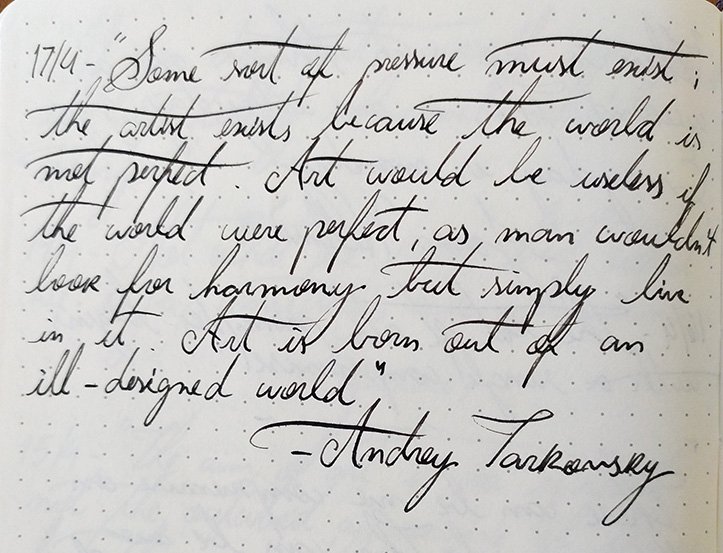 17/4 - "Some sort of pressure must exist;
the artist exists because the world is
not perfect. Art would be useless if
the world were perfect, as man wouldn't
look for harmony but simply live
in it. Art is born out of an
ill-designed world"
- Andrey Tarkovsky